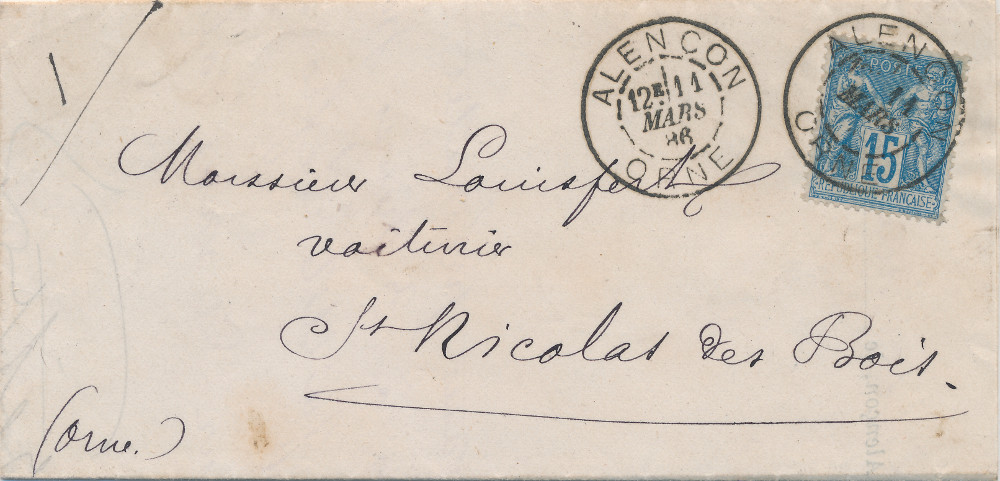 ALENCON
12E 11
MARS
86
ORNE
ALENCON
11
MARS
ORNE
POSTES
15
REPUBLIQUE FRANÇAISE
Monsieur
voiturier
St Nicolas des Bois.
(Orne.)